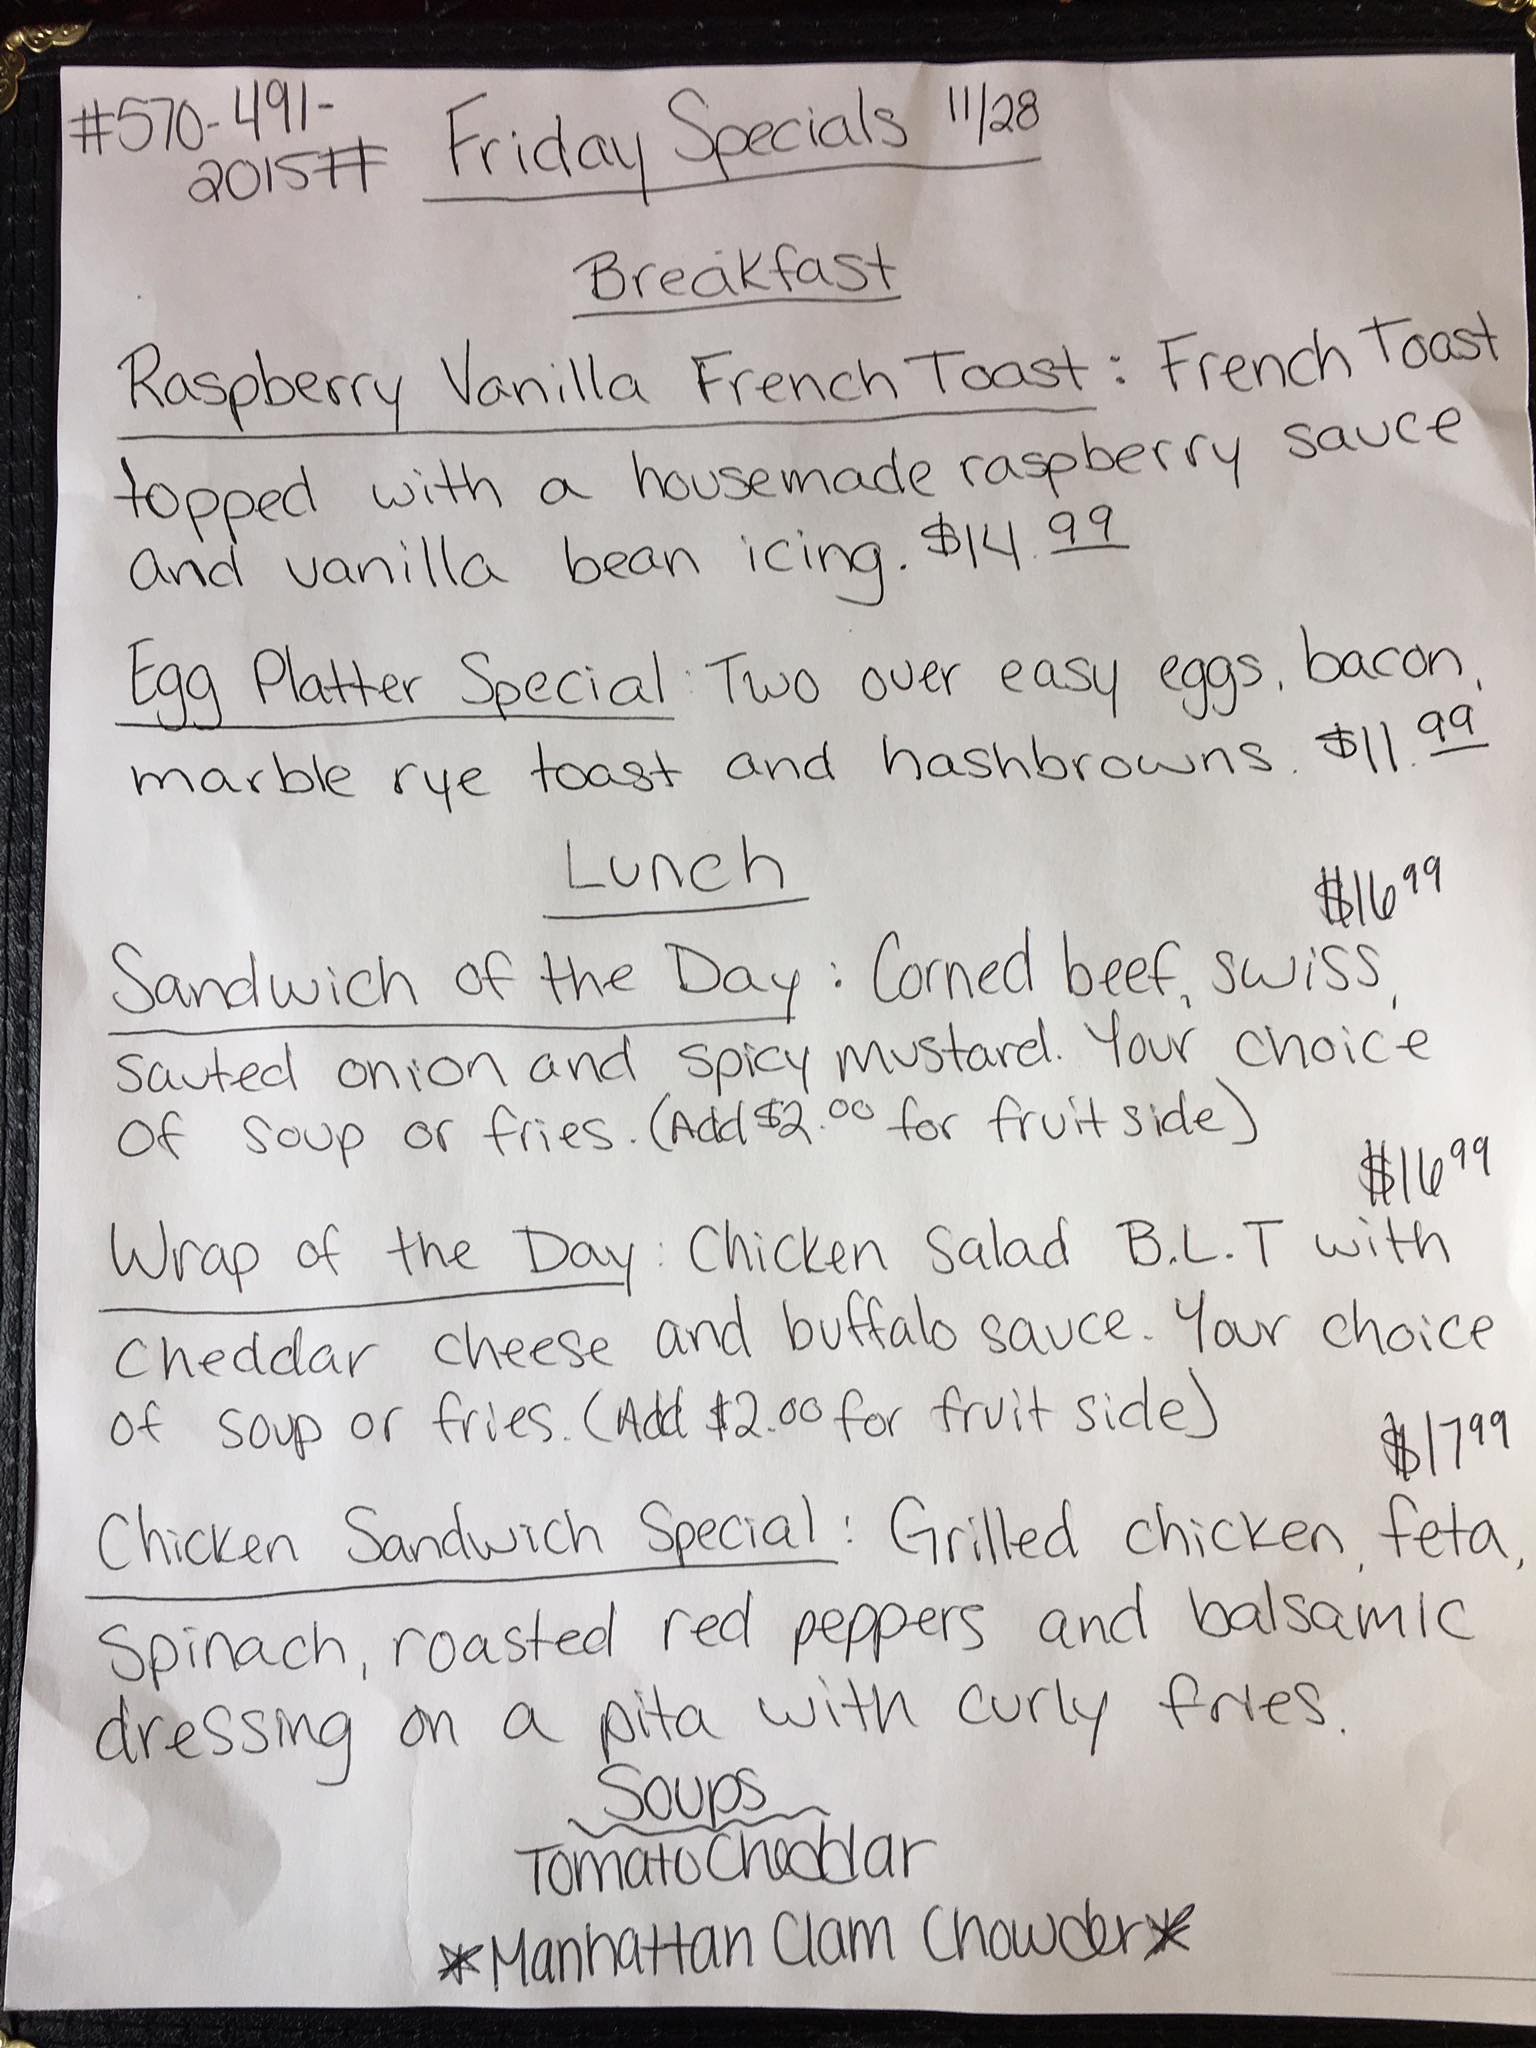 #570-491-
2015#
Friday Specials 11/28
Breakfast
Raspberry Vanilla French Toast: French Toast
topped with a housemade raspberry sauce
and vanilla bean icing. $14.99
Egg Platter Special: Two over easy eggs, bacon,
marble rye toast and hashbrowns. $11.99
Lunch
$16 99
Sandwich of the Day: Corned beef, swiss,
sauted onion and spicy mustard. Your choice
of soup or fries. (Add $2.00 for fruit side)
$16 99
Wrap of the Day: Chicken Salad B.L.T with
cheddar cheese and buffalo sauce. Your choice
of soup or fries. (Add $2.00 for fruit side)
$17 99
Chicken Sandwich Special: Grilled chicken, feta,
spinach, roasted red peppers and balsamic
dressing on a pita with curly fries.
Soups
Tomato Cheddar
*Manhattan Clam Chowder*